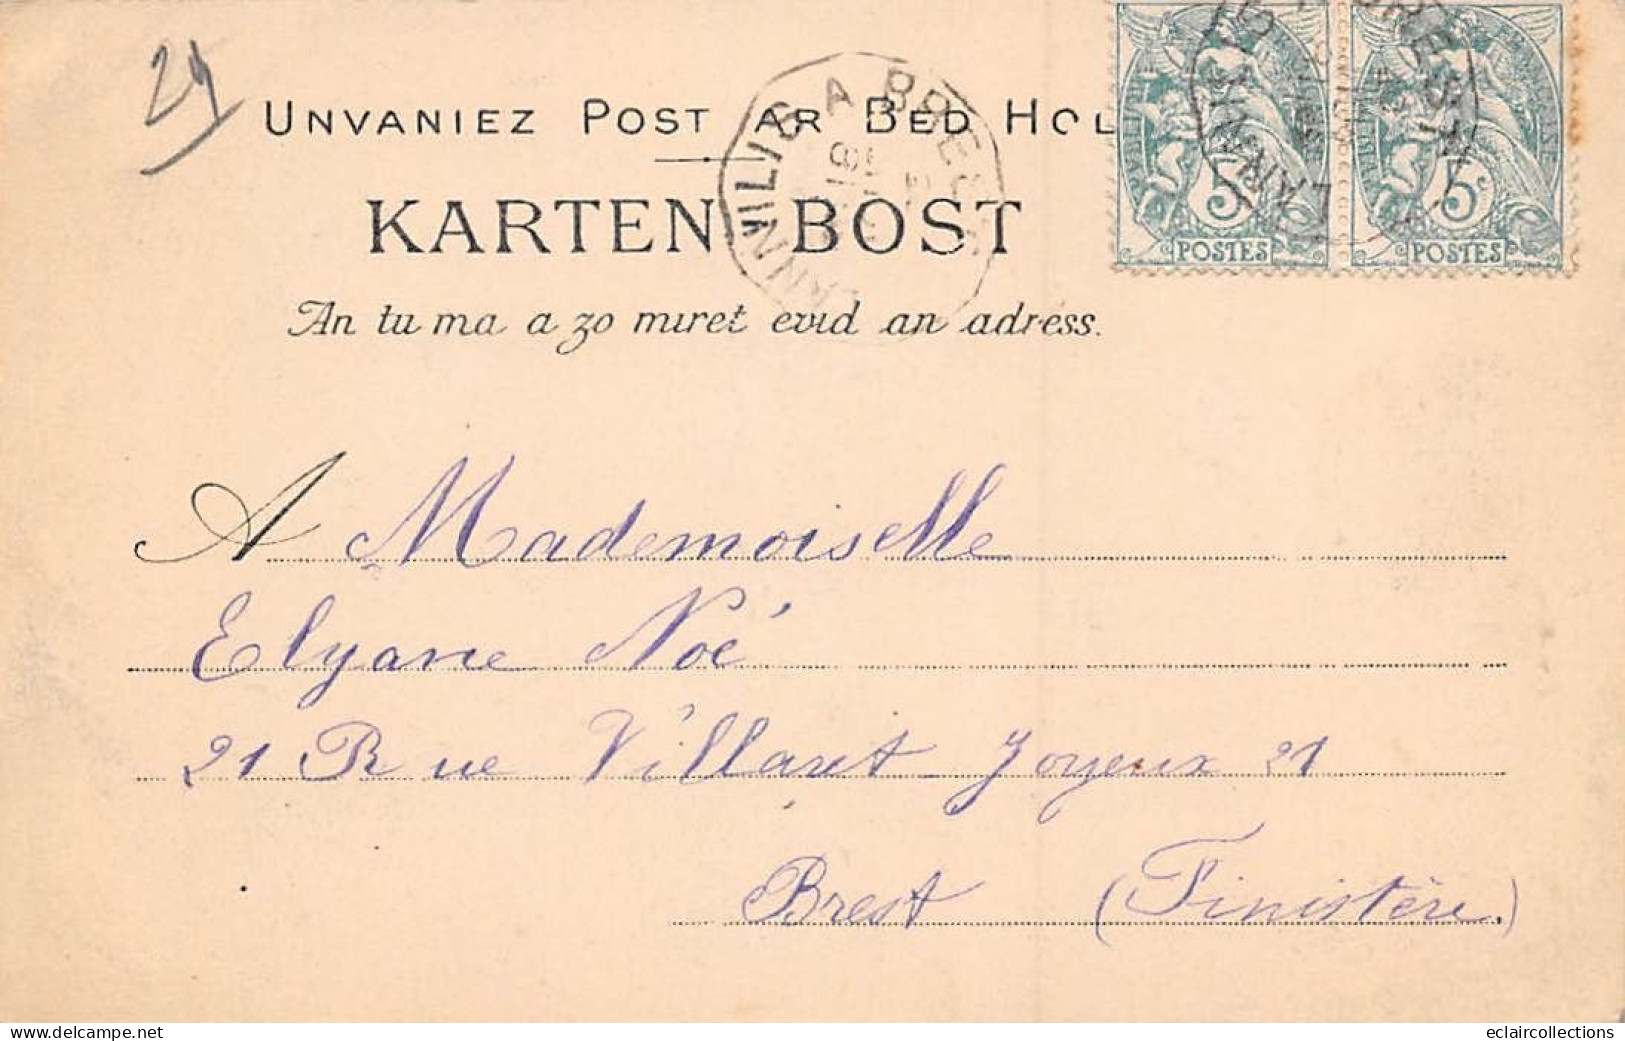 29
UNVANIEZ POST AR BED HOL
KARTEN-BOST
An tu ma a zo miret evid an adréss.
LANNILIS A BREST
5 5c
POSTES POSTES
A Mademoiselle
Elyane Noé
21 Rue Villaret Joyeux 21
Brest (Finistère)
eclaircollections